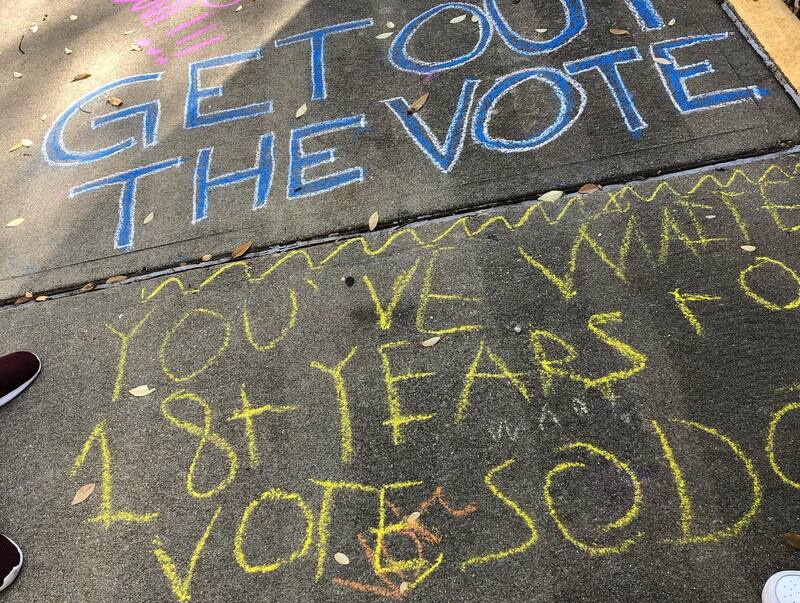 GET OUT
THE VOTE
YOU'VE WAITE
18+ YEARS FO
WANT
VOTE SO DO